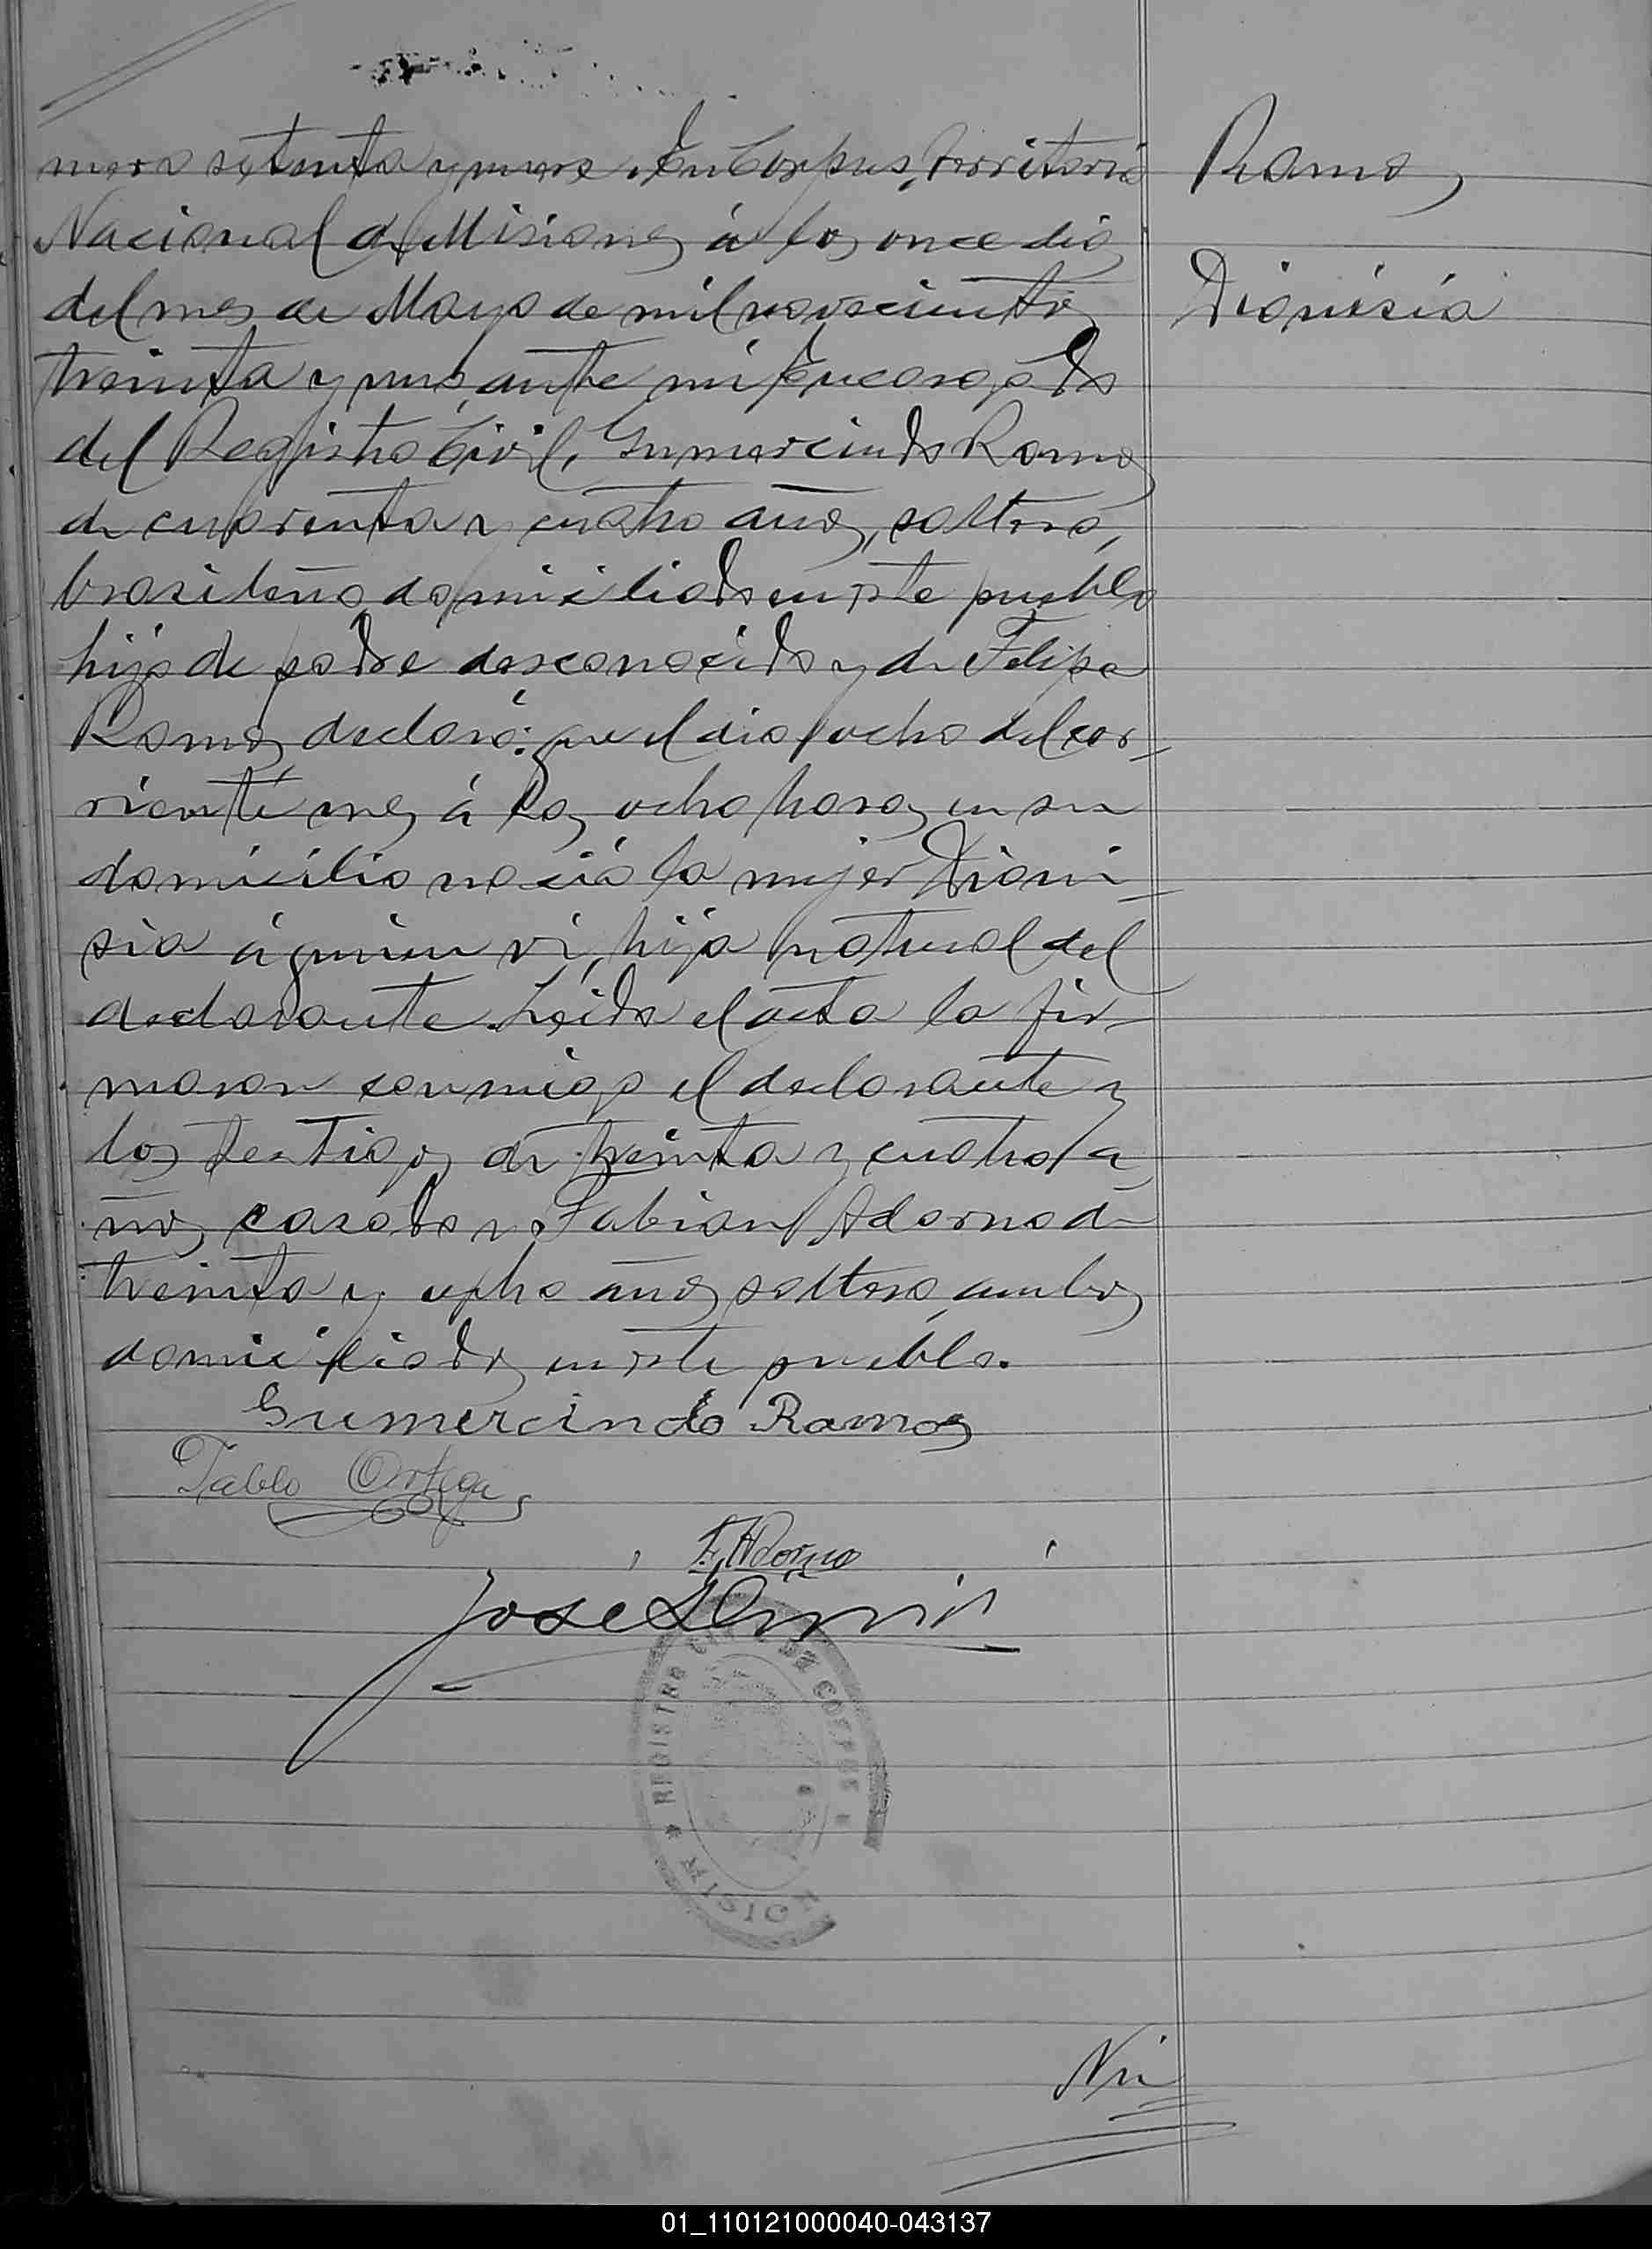 mero setenta y nueve. En Corpus, Territorio
Nacional de Misiones á los once dias
del mes de Mayo de mil novecientos
treinta y uno, ante mi Encargado
del Registro Civil, Gumercindo Ramos
de cuarenta y cuatro años, soltero,
brasileño domiciliado en este pueblo
hijo de padre desconocido y de Felipa
Ramos, declaró: que el dia ocho del cor-
riente mes á las ocho horas en su
domicilio nació la mujer Dioni-
sia á quien vi, hija natural del
declarante. Leida el acta la fir-
maron conmigo el declarante y
los testigos de treinta y cuatro a-
ños, casado y Fabian Adorno de
treinta y ocho años soltero, ambos
domiciliados en este pueblo.
Gumercindo Ramos
Pablo Ortega
F. Adorno
José
REGISTRO CIVIL DE CORPUS
MISION
Ramos
Dionisia
Nú
01_110121000040-043137